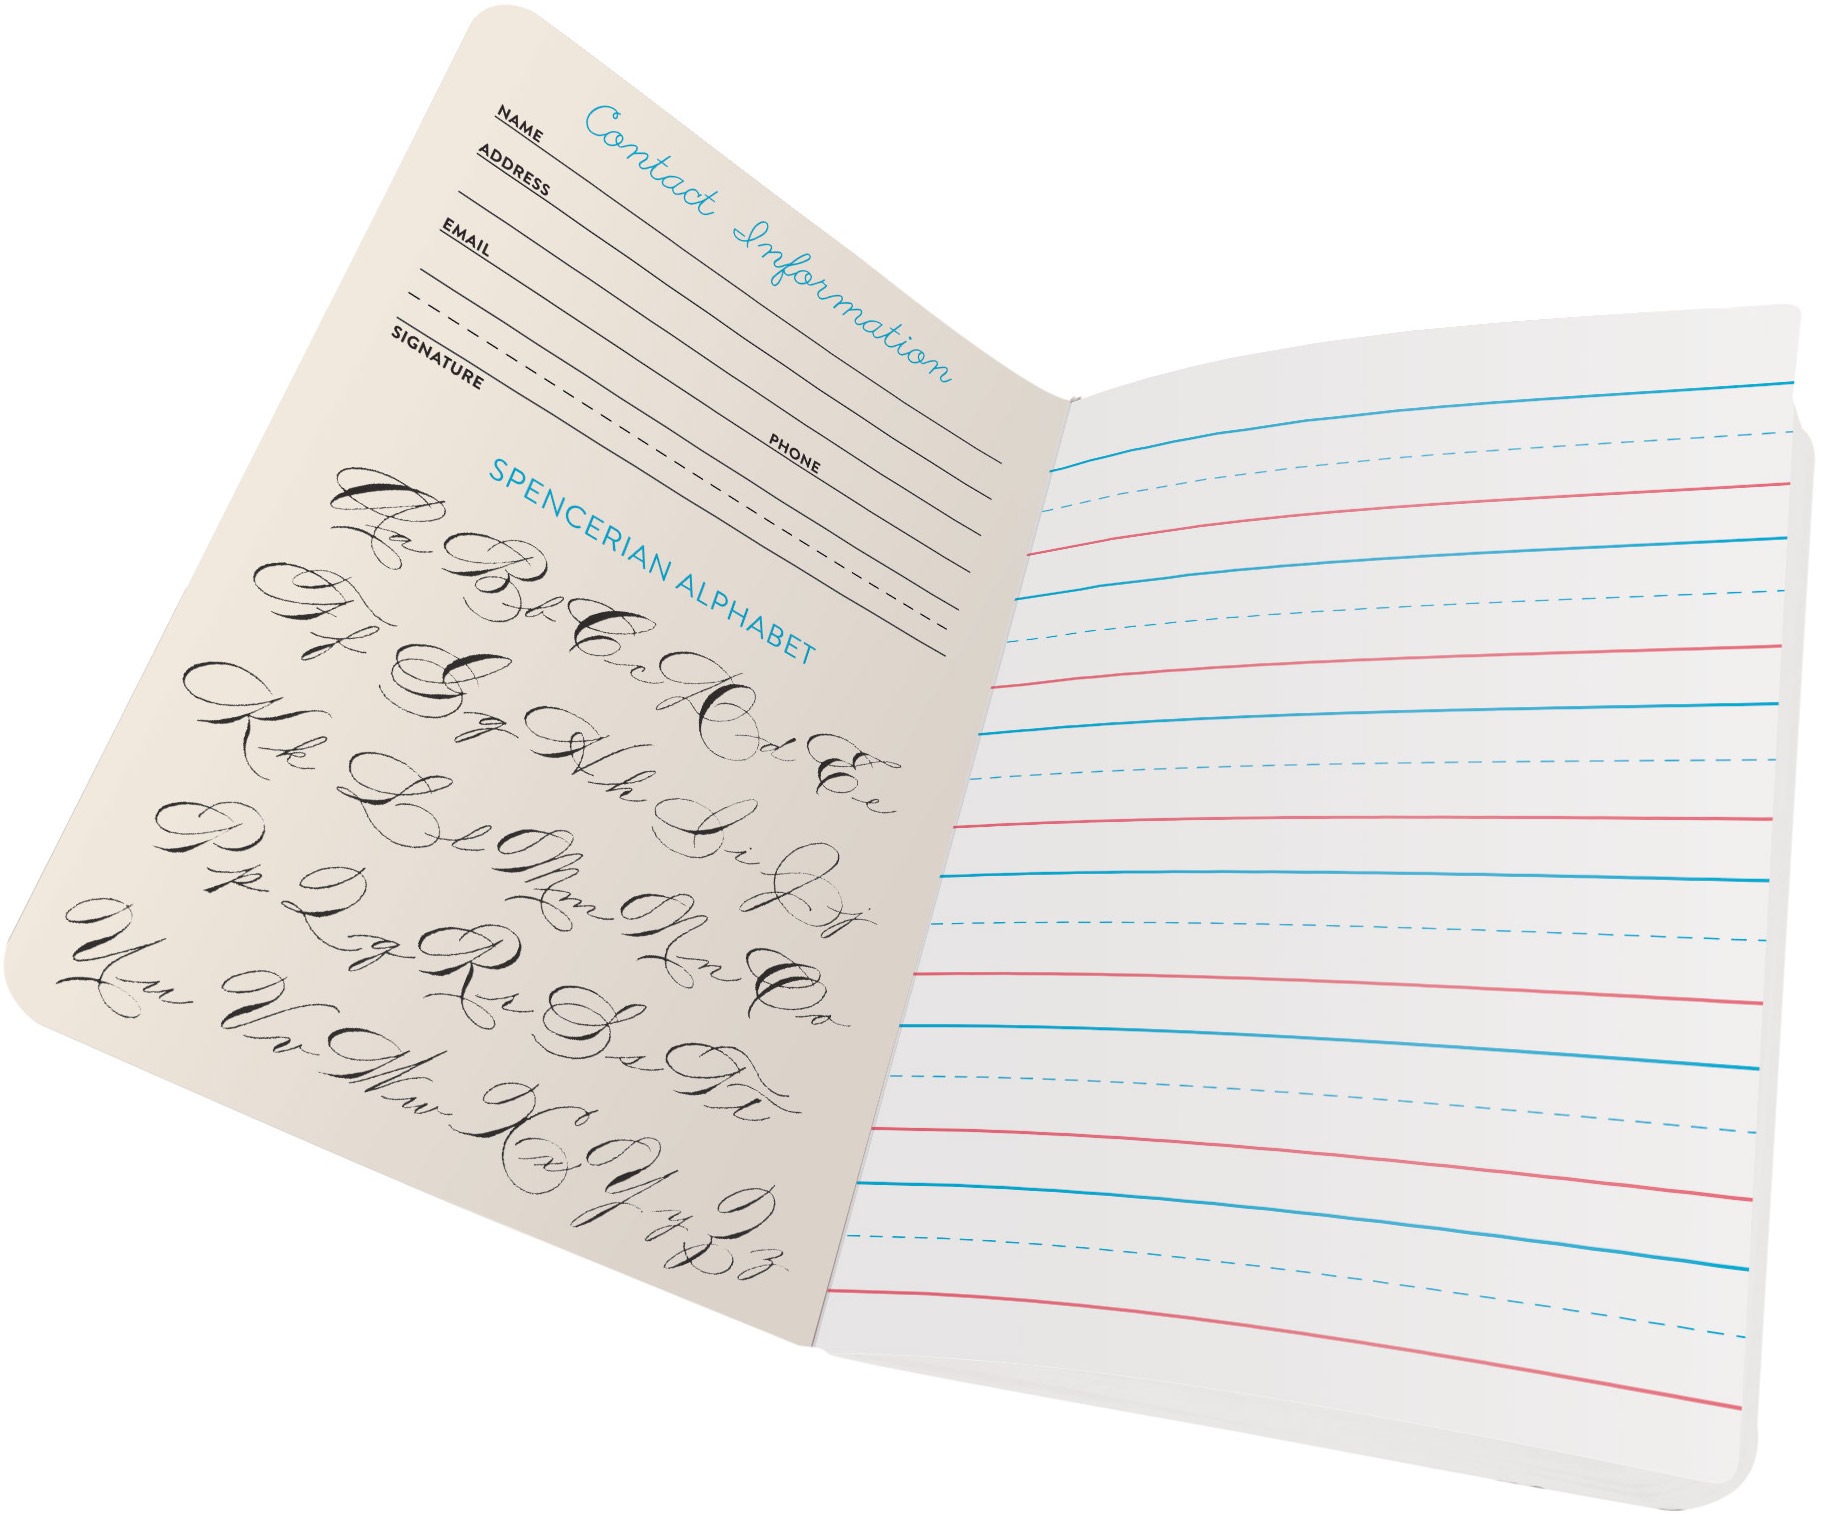 Contact Information
NAME
ADDRESS
EMAIL PHONE
SIGNATURE
SPENCERIAN ALPHABET
Aa Bb Cc Dd Ee
Ff Gg Hh Ii Jj
Kk Ll Mm Nn Oo
Pp Qq Rr Ss Tt
Uu Vv Ww Xx Yy Zz